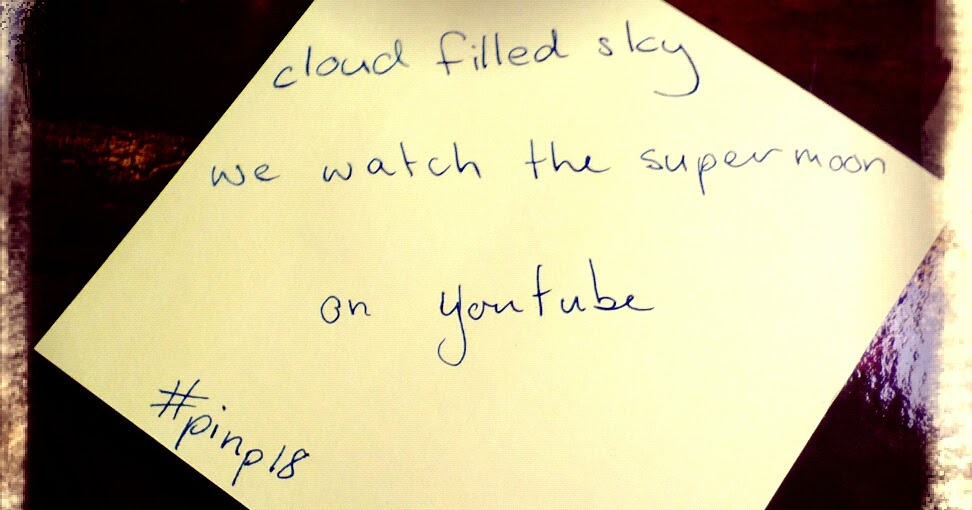 cloud filled sky
we watch the supermoon
on youtube
#pinp18